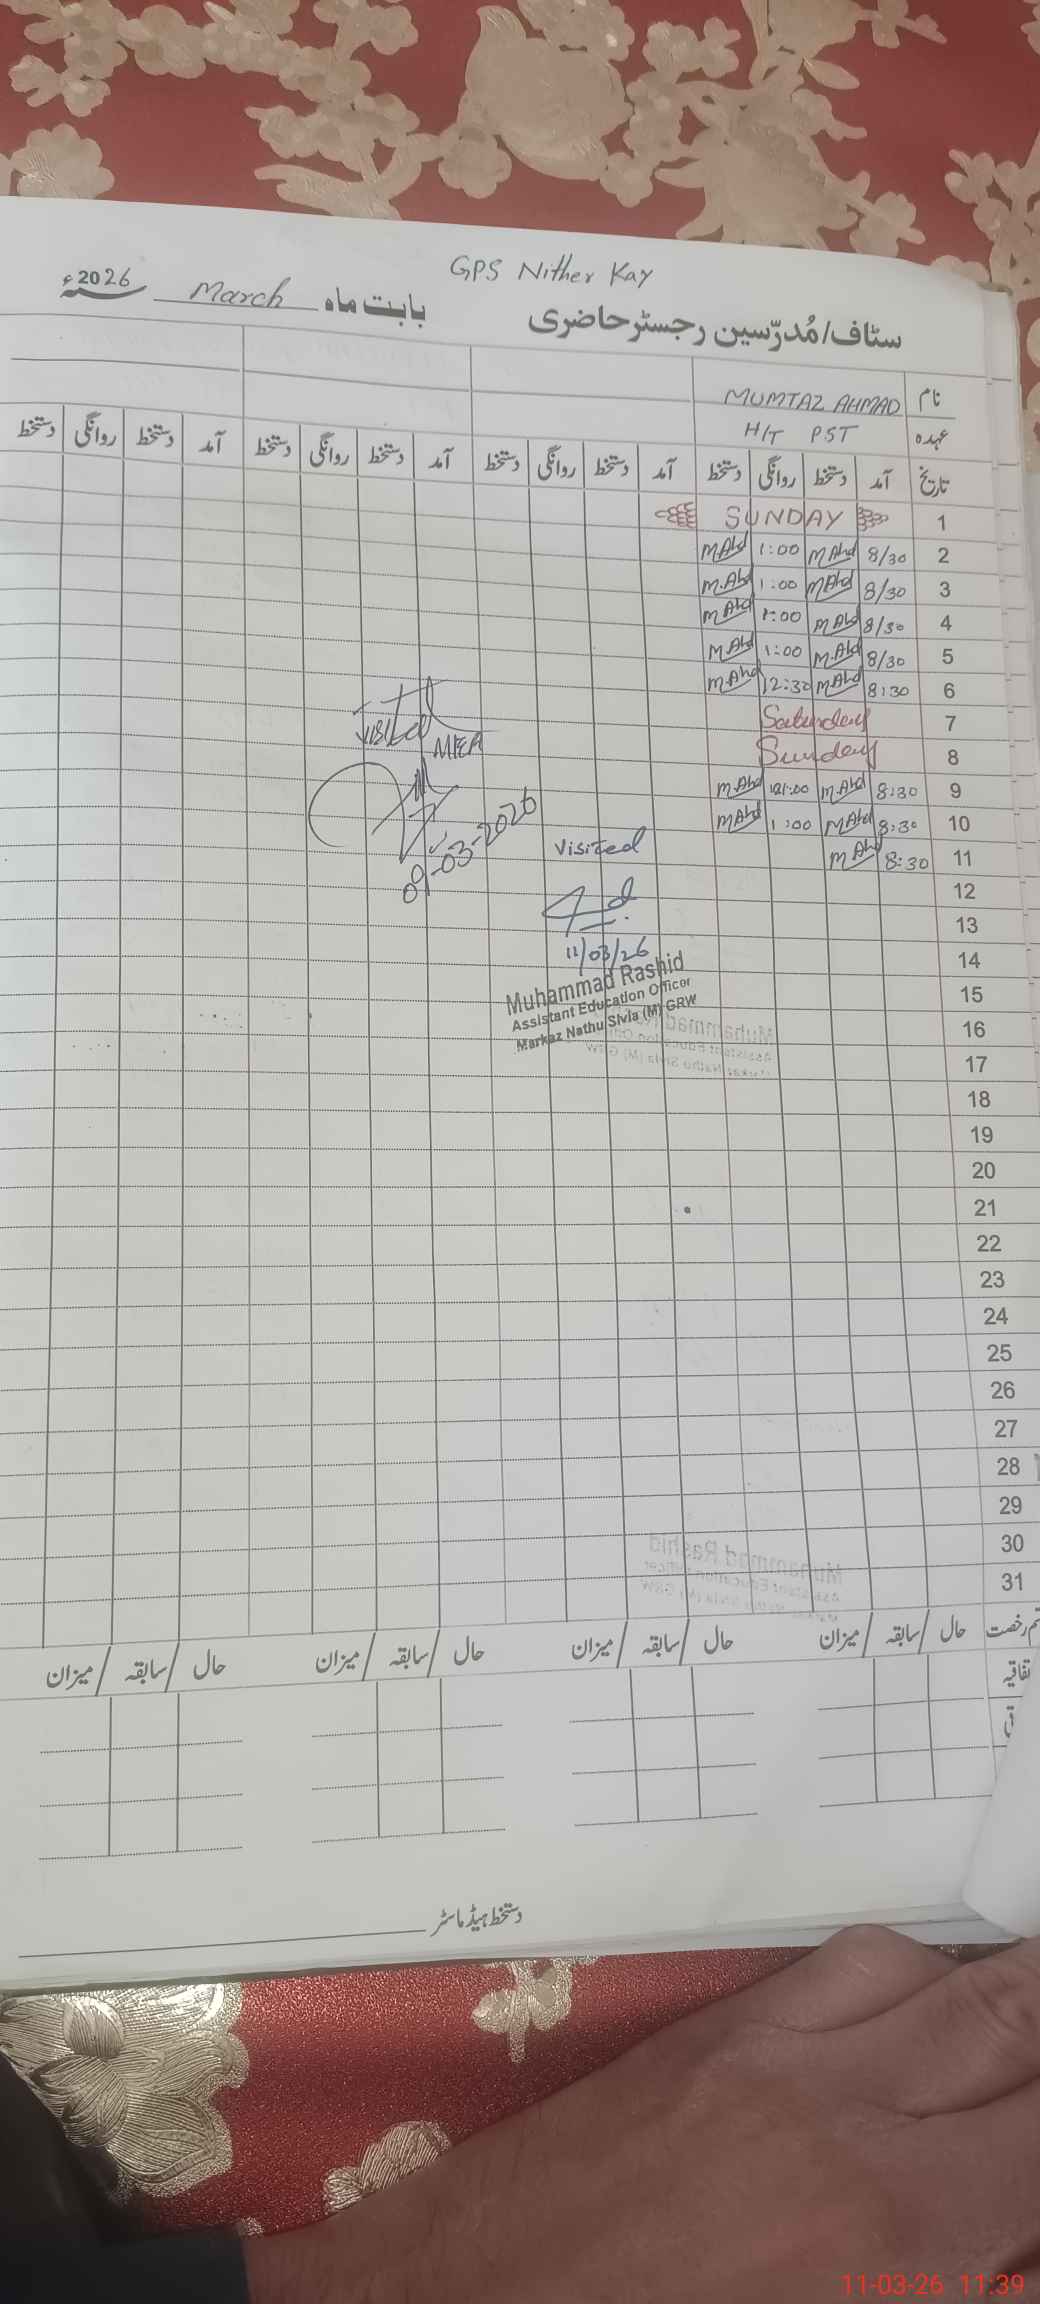 GPS Nither Kay
سٹاف/مُدرّسین رجسٹر حاضری بابت ماہ March سنہ 2026ء
نام MUMTAZ AHMAD
عہدہ H/T PST
تاریخ آمد دستخط روانگی دستخط آمد دستخط روانگی دستخط آمد دستخط روانگی دستخط آمد دستخط روانگی دستخط
1 SUNDAY
2 8/30 MAhd 1:00 MAhd
3 8/30 MAhd 1:00 MAhd
4 8/30 MAhd 1:00 MAhd
5 8/30 MAhd 1:00 MAhd
6 8:30 MAhd 12:30 MAhd
7 Saturday
8 Sunday
9 8:30 MAhd MAhd
10 8:30 MAhd 1:00 MAhd
11 8:30 MAhd
12
13
14
15
16
17
18
19
20
21
22
23
24
25
26
27
28
29
30
31
Visited
MEA
09-03-2026
Visited
11/03/26
Muhammad Rashid
Assistant Education Officer
Markaz Nathu Sivia (M) GRW
حال / سابقہ / میزان حال / سابقہ / میزان حال / سابقہ / میزان حال / سابقہ / میزان
دستخط ہیڈ ماسٹر
11-03-26 11:39